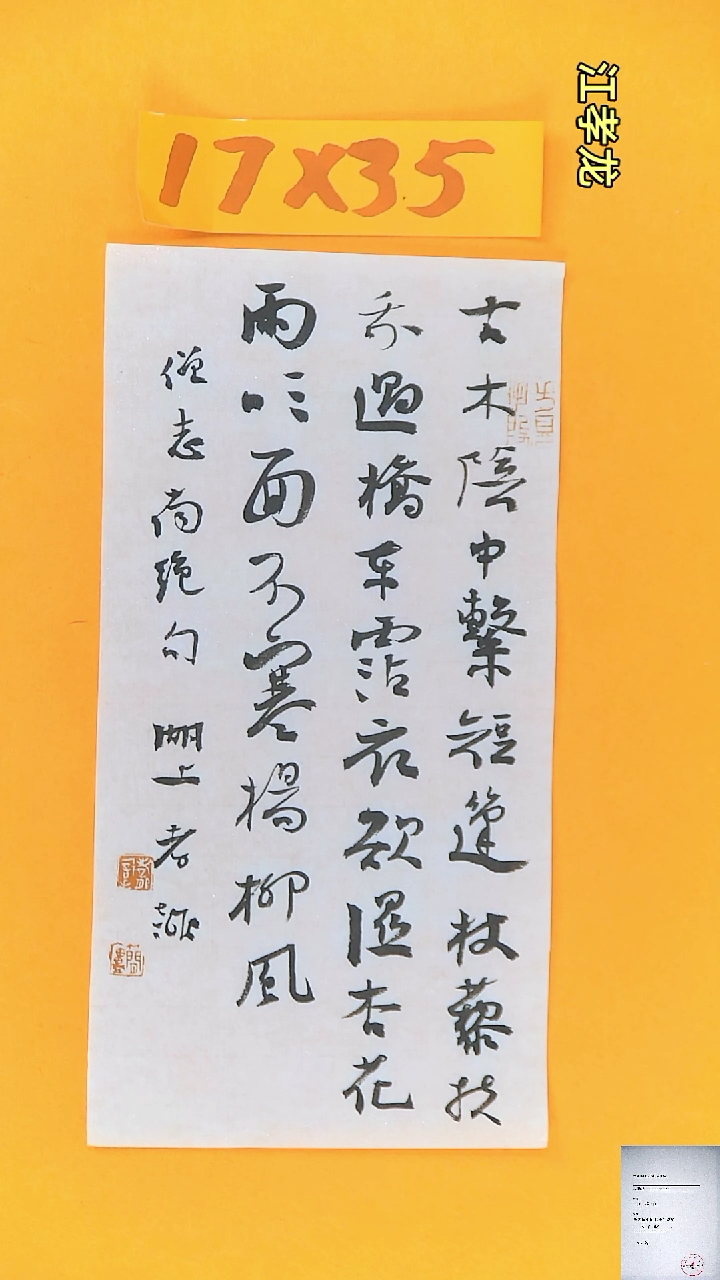 江孝龙
17X35
古木陰中繫短篷杖藜扶
我過橋東霑衣欲濕杏花
雨吹面不寒楊柳風
僧志南絕句 湖上老